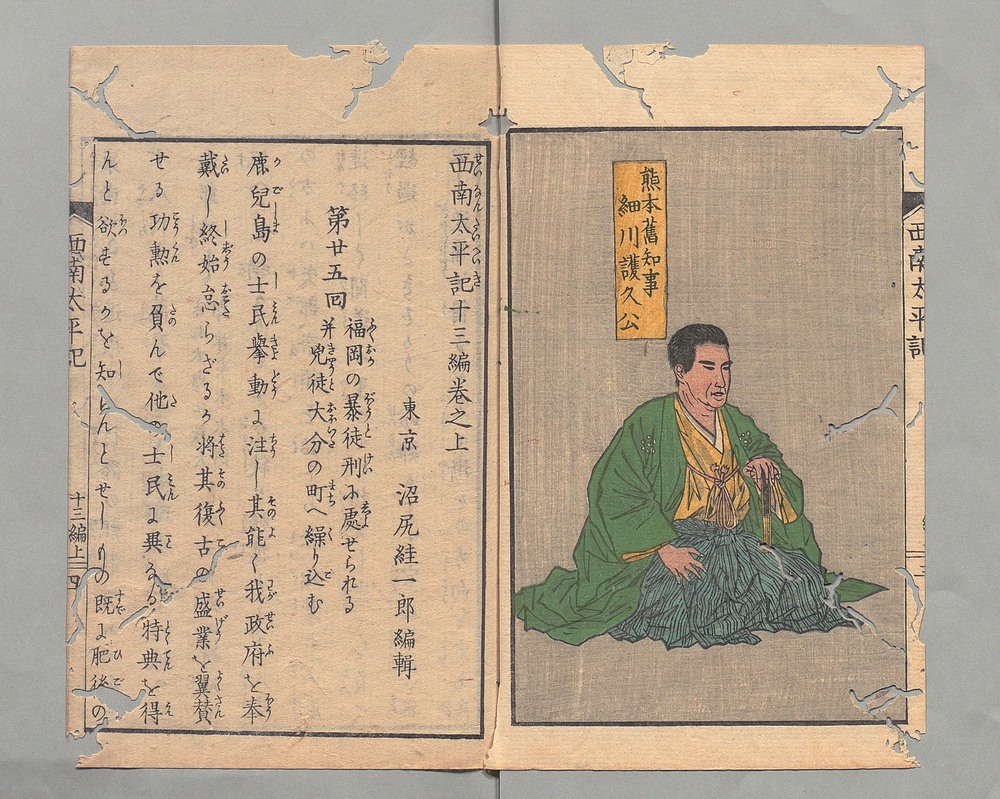 熊本舊知事
細川護久公
西南太平記
西南太平記十三編巻之上
東京 沼尻絓一郎編輯
第廿五回
福岡の暴徒刑に處せられる
并兇徒大分の町へ繰り込む
鹿兒島の士民擧動に注し其能く我政府を奉
戴し終始怠らざるか将其復古の盛業を翼賛
せる功勲を負んで他の士民に異なる特典を得
んと欲するかを知らんとせしもの既に肥後の
西南太平記
十三編上